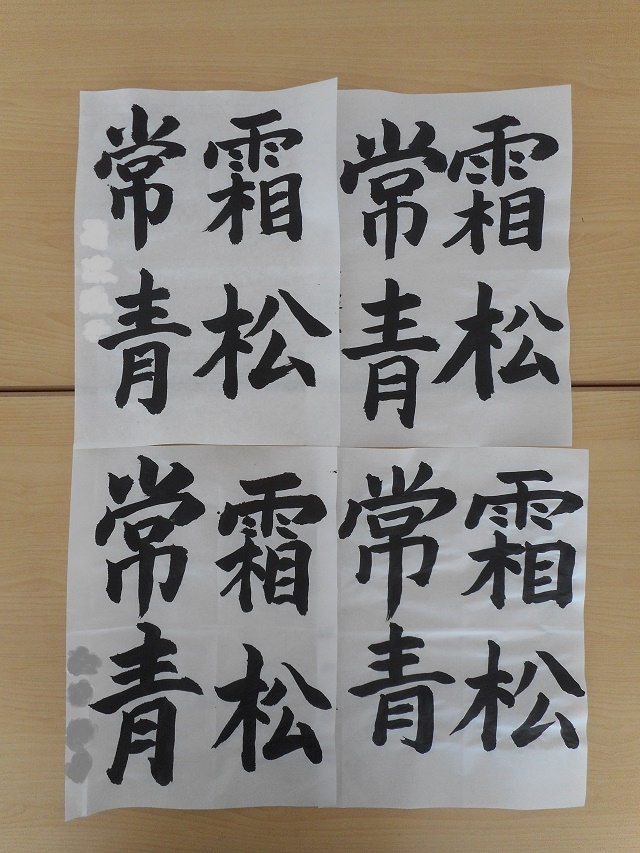 霜松
常青
霜松
常青
霜松
常青
霜松
常青